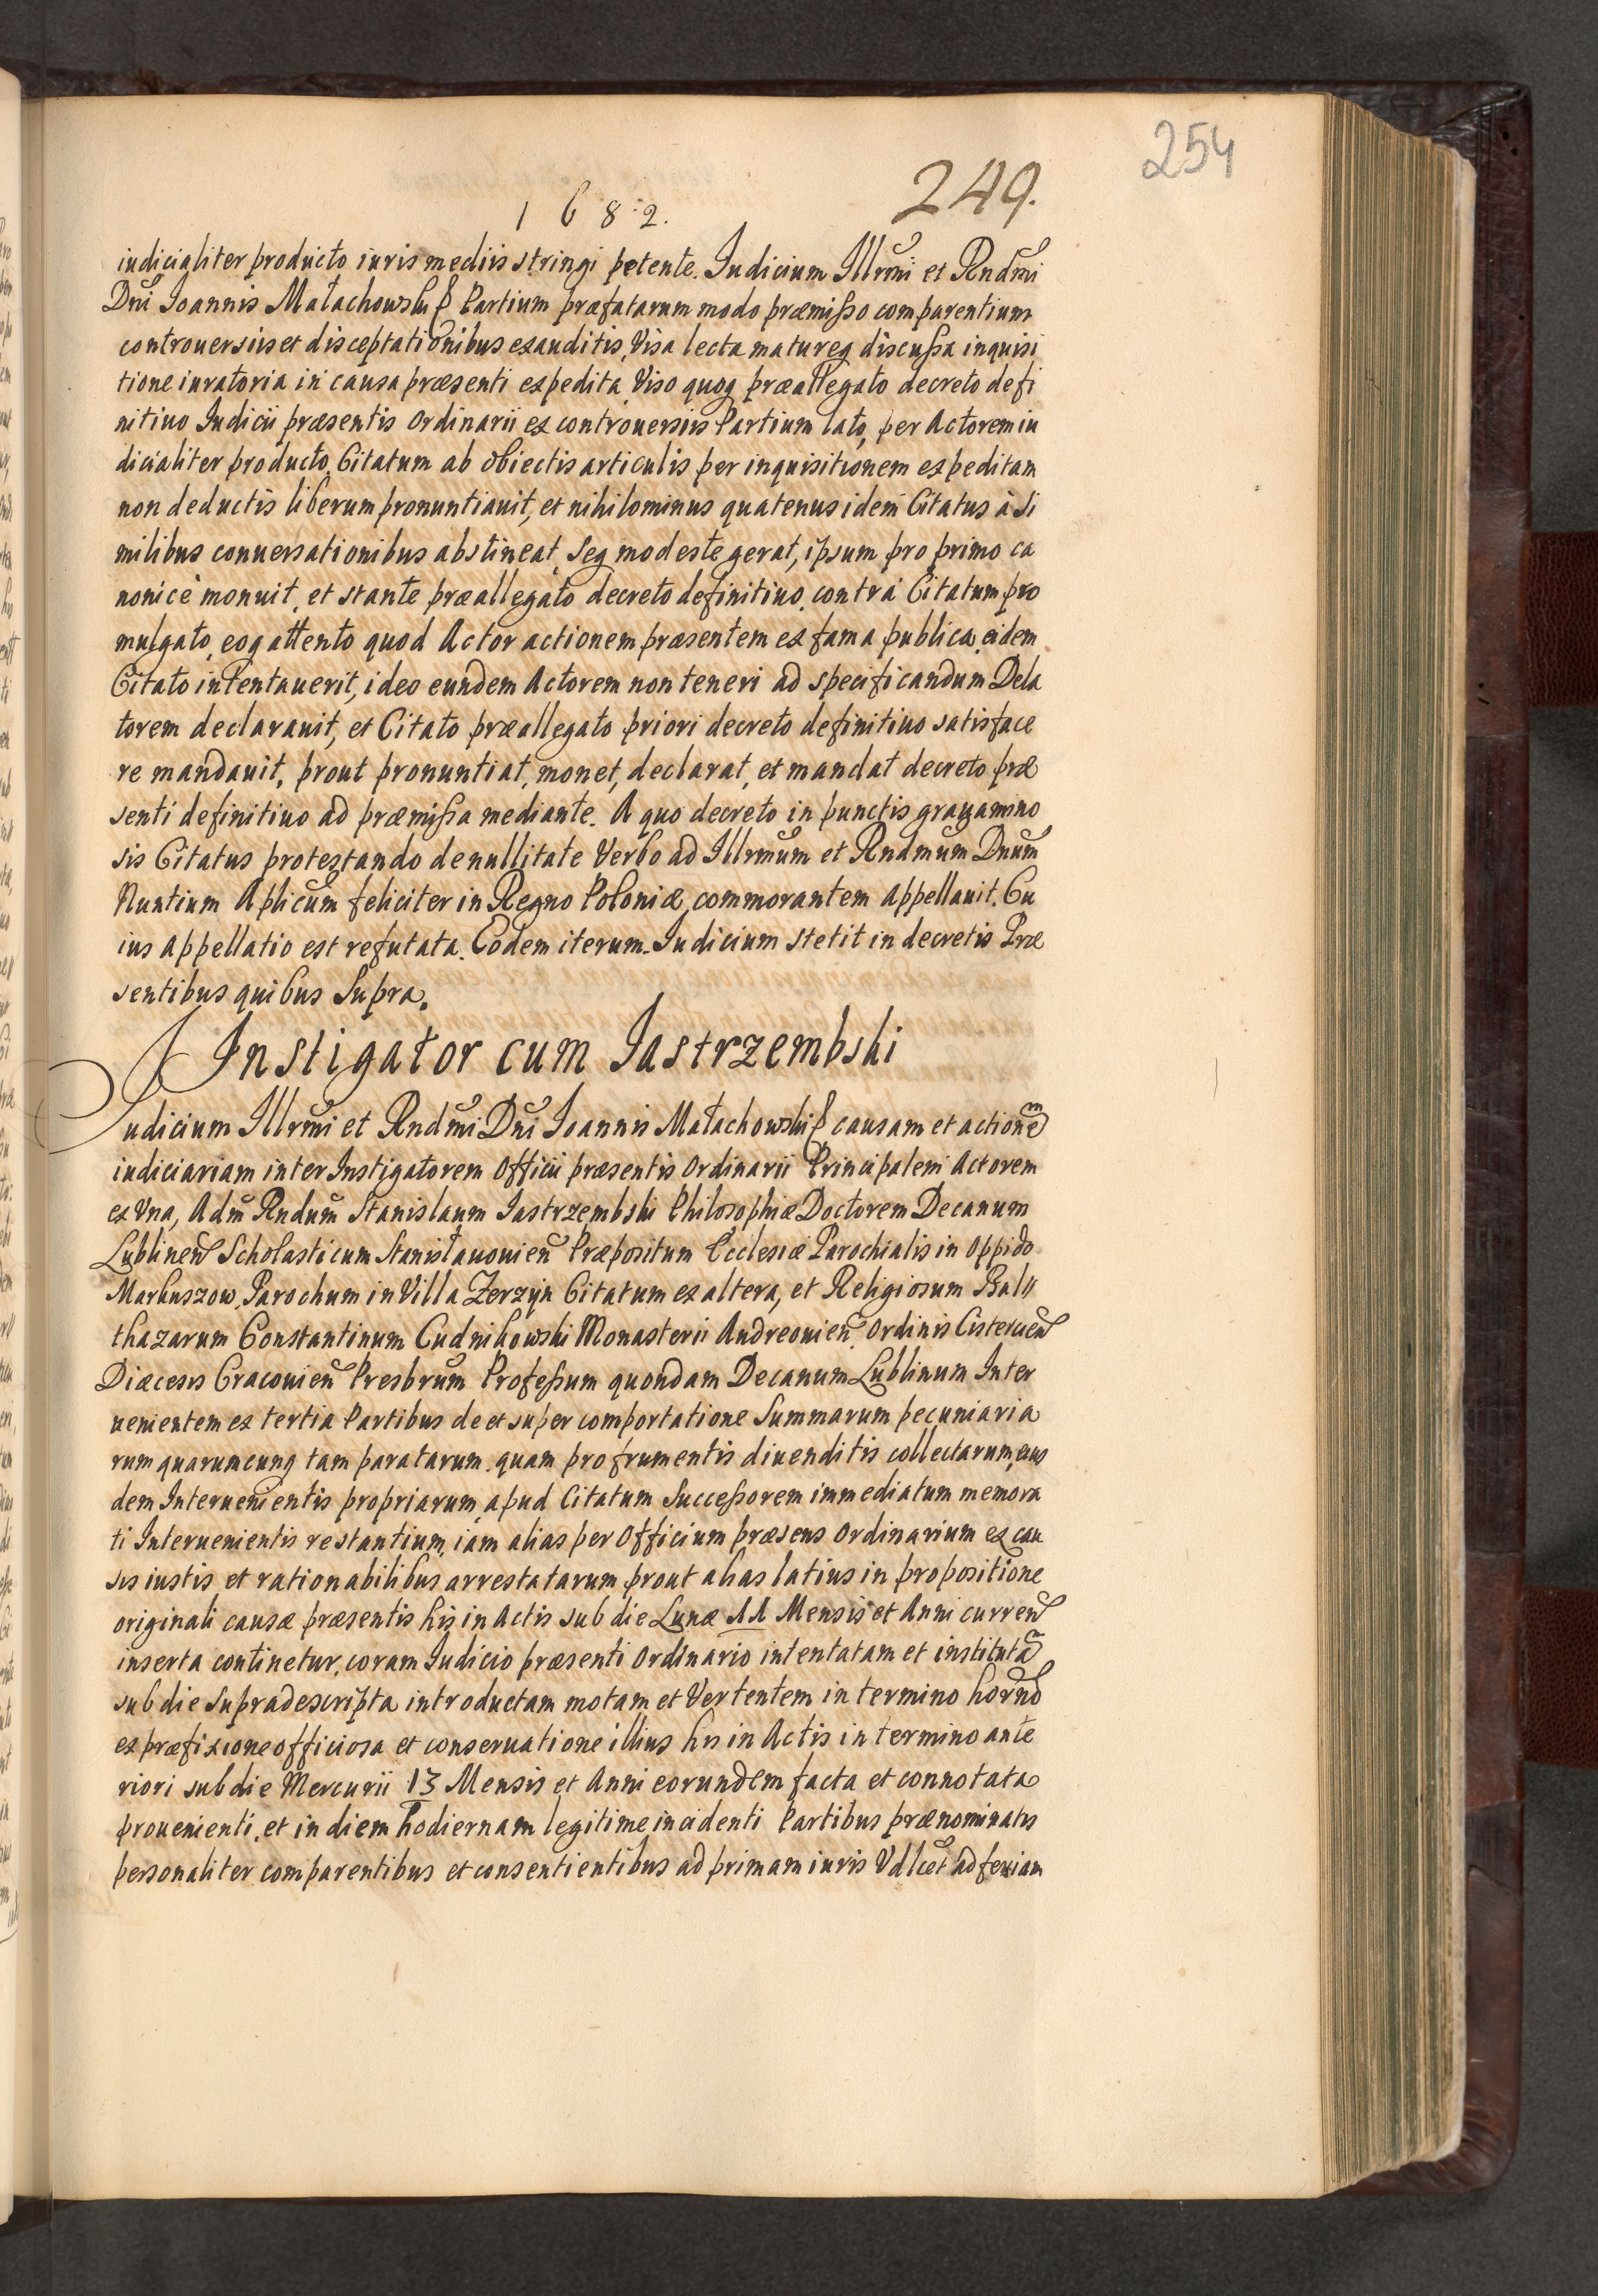 254
249.
1682.
iudicialiter producto iuris mediis stringi petente. Iudicium Illrmi et Rndmi
Dni Joannis Małachowski Partium præfatarum modo præmisso comparentium
controuersiis et disceptationibus exauditis, Visa lecta matureq discussa inquisi
tione iuratoria in causa præsenti expedita, Viso quoq præallegato decreto defi
nitiuo Iudicii præsentis Ordinarii ex controuersiis Partium lato, per Actorem iu
dicialiter producto, Citatum ab obiectis articulis per inquisitionem expeditam
non deductis liberum pronuntiauit, et nihilominus quatenus idem Citatus à si
milibus conuersationibus abstineat, seq modeste gerat, ipsum pro primo ca
nonicè monuit, et stante præallegato decreto definitiuo, contra Citatum pro
mulgato, eoq attento quod Actor actionem præsentem ex fama publica, eidem
Citato intentauerit, ideo eundem Actorem non teneri ad specificandum Dela
torem declarauit, et Citato præallegato priori decreto definitiuo satisface
re mandauit, prout pronuntiat, monet, declarat, et mandat decreto præ
senti definitiuo ad præmissa mediante. A quo decreto in punctis grauamino
sis Citatus protestando de nullitate Verbo ad Illrmum et Rndmum Dnum
Nuntium Aplicum feliciter in Regno Poloniæ commorantem appellauit. Cu
ius appellatio est refutata. Eodem iterum Iudicium stetit in decretis Præ
sentibus quibus Supra.
Instigator cum Jastrzembski
Iudicium Illrmi et Rndmi Dni Joannis Małachowski causam et actionem
iudiciariam inter Instigatorem Officii præsentis Ordinarii Principalem Actorem
ex Vna, Adm Rndum Stanislaum Jastrzembski Philosophiæ Doctorem Decanum
Lublinen Scholasticum Stanisławouien Præpositum Ecclesiæ Parochialis in Oppido
Markuszow, Parochum in Villa Zerzyn Citatum ex altera, et Religiosum Bal
thazarum Constantinum Cudnikowski Monasterii Andreouien Ordinis Cistercien
Diæcesis Cracouien Presbrum Professum quondam Decanum Lublinum Inter
uenientem ex tertia Partibus de et super comportatione Summarum pecuniaria
rum quarumcunq tam paratarum, quam pro frumentis diuenditis collectarum, eius
dem Interuenientis propriarum, apud Citatum Successorem immediatum memora
ti Interuenientis restantium, iam alias per Officium præsens Ordinarium ex cau
sis iustis et rationabilibus arrestatarum prout alias latius in propositione
originali causæ præsentis his in Actis sub die Lunæ 11 Mensis et Anni curren
inserta continetur, coram Iudicio præsenti Ordinario intentatam et institutã
sub die supradescripta introductam motam et Vertentem in termino horno
ex præfixione officiosa et conseruatione illius his in Actis in termino ante
riori sub die Mercurii 13 Mensis et Anni eorundem facta et connotata
prouenienti, et in diem hodiernam legitime incidenti Partibus prænominatis
personaliter comparentibus et consentientibus ad primam iuris Vdlcet ad feriam